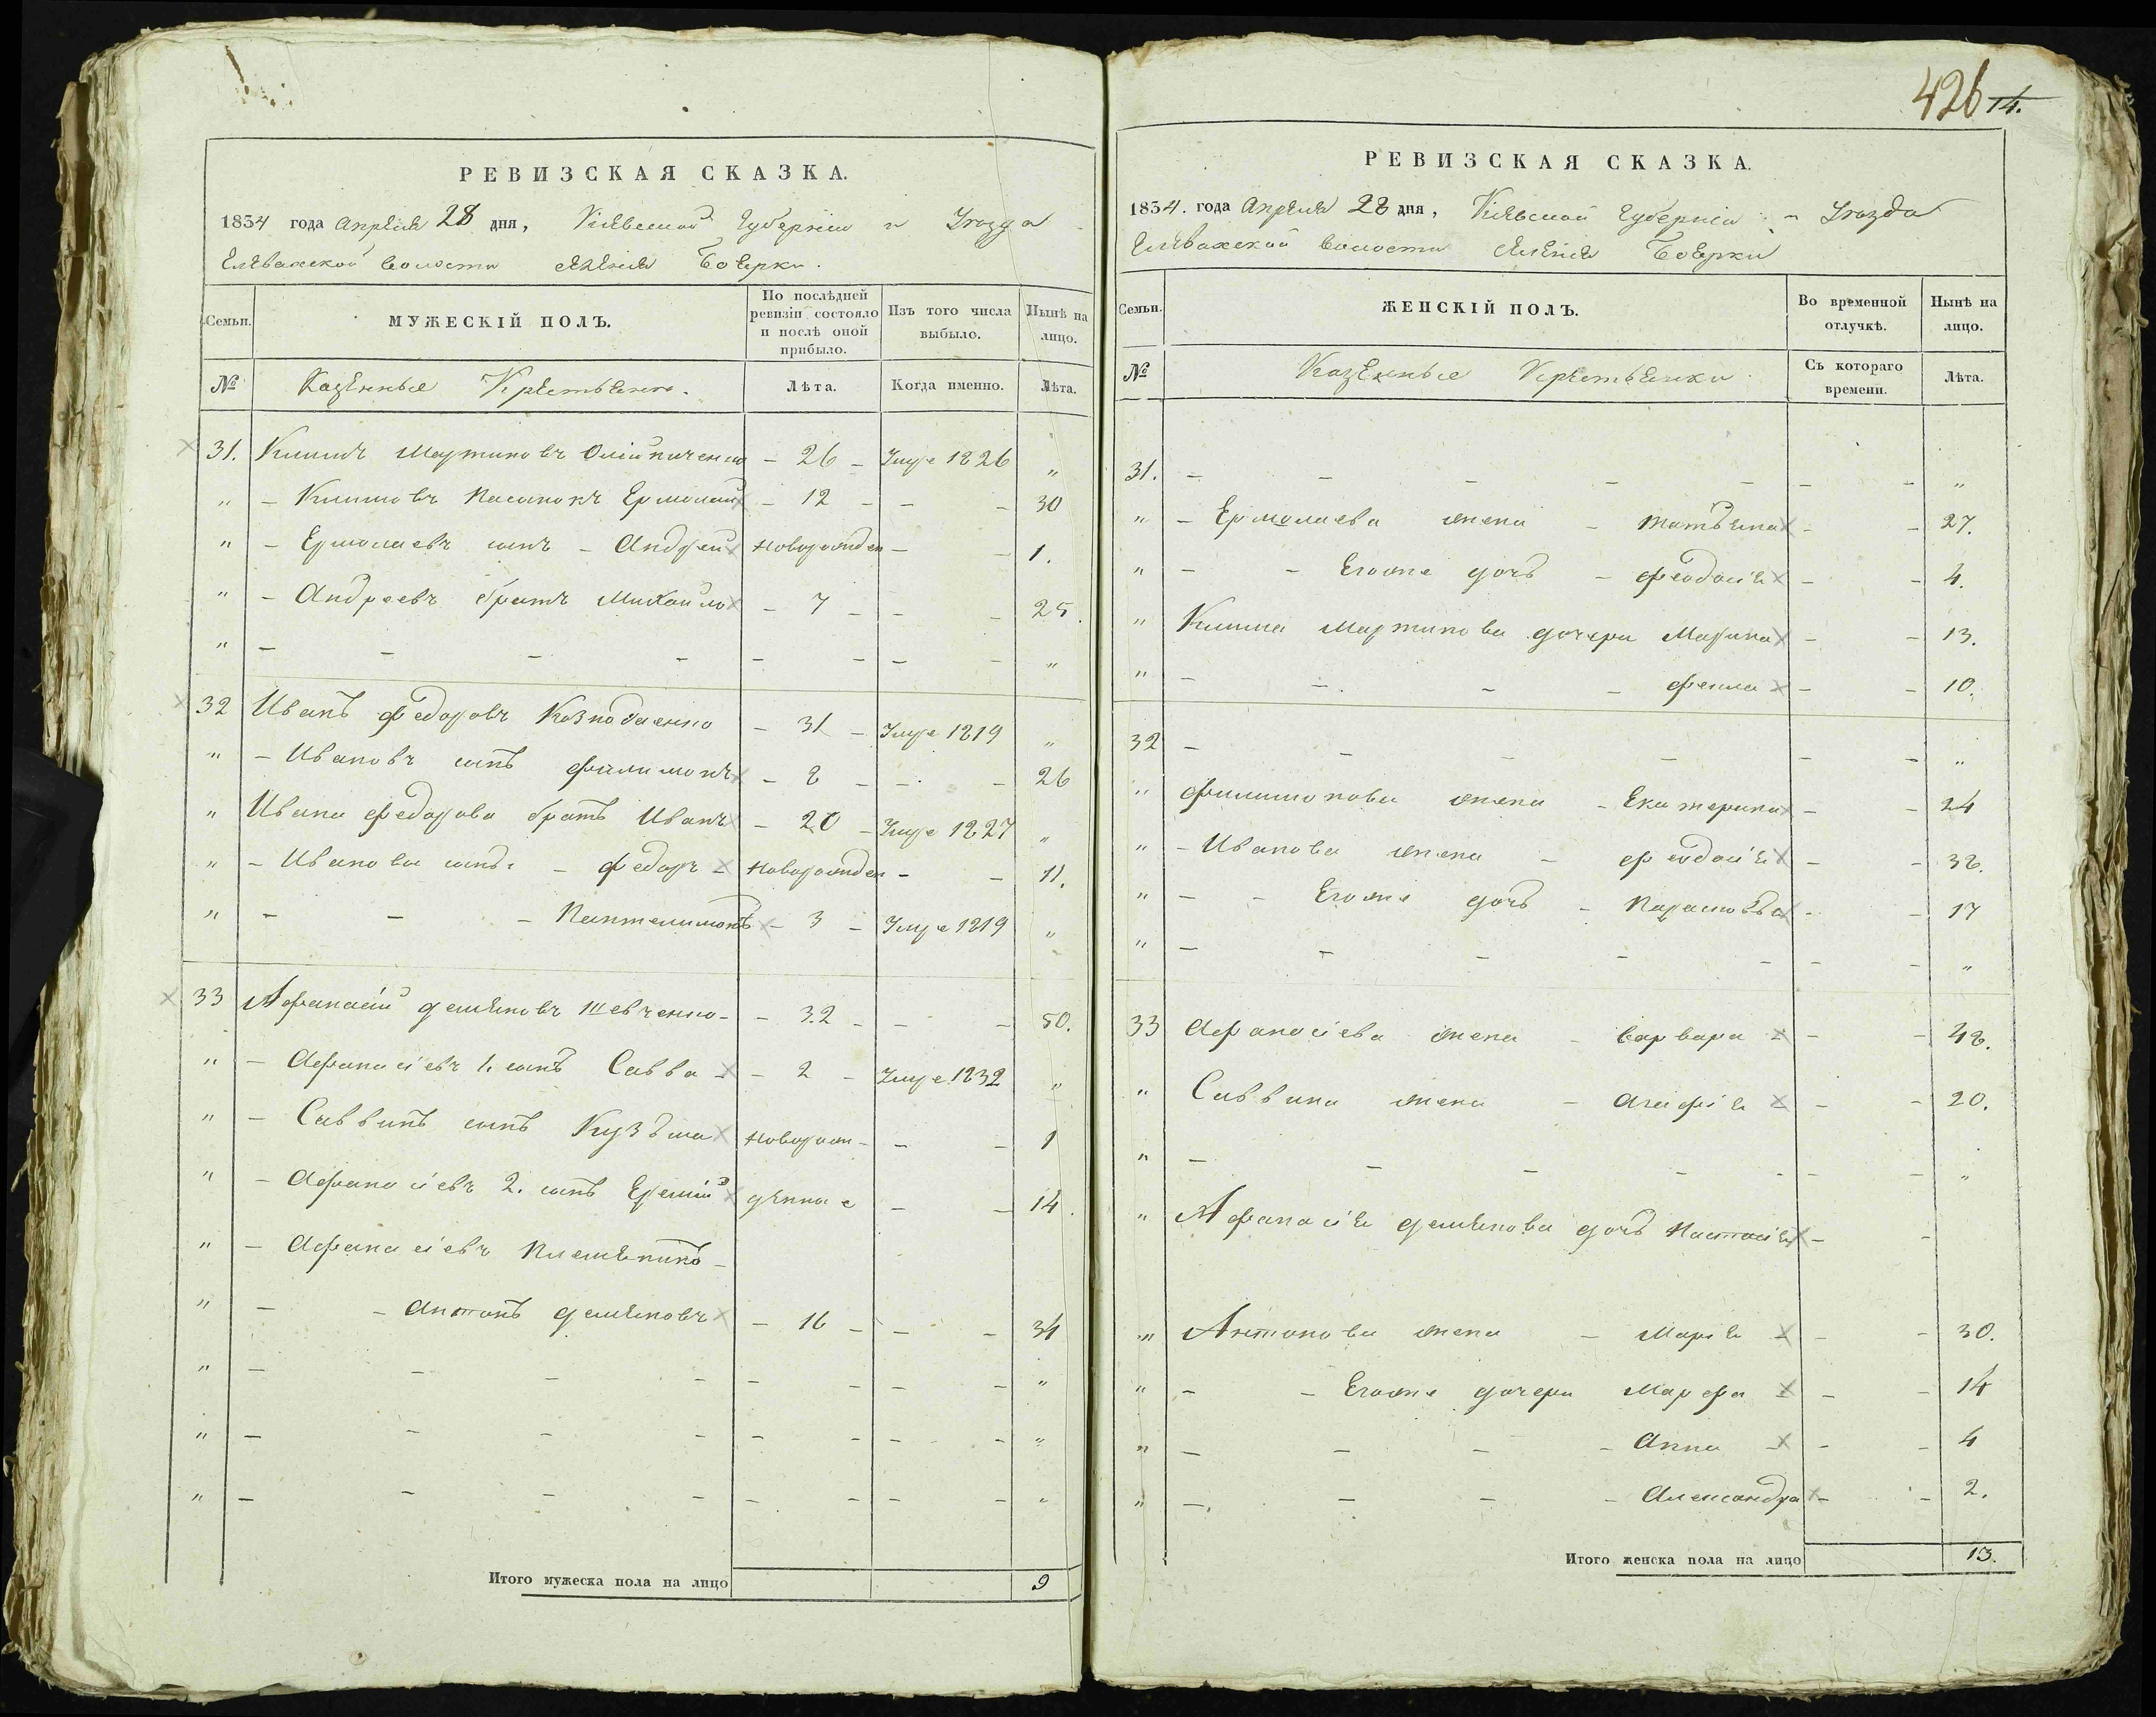 РЕВИЗСКАЯ СКАЗКА.
1834 года Апреля 28 дня, Кіевской Губерніи и Уезда
волости селенія Боерки.
Семьи. МУЖЕСКІЙ ПОЛЪ. По послѣдней ревизіи состояло и послѣ оной прибыло. Изъ того числа выбыло. Нынѣ на лицо.
№ Казенные Крестьяне. Лѣта. Когда именно. Лѣта.
31. Климъ Мартиновъ - 26 - Умре 1826 "
" - Климовъ пасынокъ Ермолай - 12 - - - 30
" - Ермолаевъ сынъ - Андрей Новорожден - - 1.
" - Андреевъ братъ Михайло - 7 - - - 25.
" - - - - - - - - "
32 Иванъ Федоровъ - 31 - Умре 1819 "
" - Ивановъ сынъ Филимонъ - 8 - - - 26
" Ивана Федорова братъ Иванъ - 20 - Умре 1827 "
" - Иванова сынъ - Федоръ - Новорожден - - 11.
" - - - Пантелимонъ - 3 - Умре 1819 "
33 Афанасій Демяновъ Шевченко - - 32 - - - 50.
" - Афанасіевъ 1. сынъ Савва - - 2 - Умре 1832 "
" - Саввинъ сынъ Кузьма Новорож - - - 1
" - Афанасіевъ 2. сынъ Еремій денные - - 14.
" - Афанасіевъ племянникъ -
" - - Антонъ Демяновъ - 16 - - - 34
" - - - - - - - - "
" - - - - - - - - "
" - - - - - - - - "
Итого мужеска пола на лицо 9
426 14.
РЕВИЗСКАЯ СКАЗКА.
1834. года Апреля 28 дня, Кіевской Губерніи и Уезда
волости селенія Боерки
Семьи. ЖЕНСКІЙ ПОЛЪ. Во временной отлучкѣ. Нынѣ на лицо.
№ Казенные Крестьянки Съ котораго времени. Лѣта.
31. - - - - - - - "
" - Ермолаева жена - Татьяна - - 27.
" - - Егоже дочь - Феодосія - - 4.
" Клима Мартинова дочери Марина - - 13.
" - - - - Фекла - - 10.
32 - - - - - - "
" Филимонова жена - Екатерина - - 24
" - Иванова жена - Феодосія - - 38.
" - - Егоже дочь - Парасковья - - 17
" - - - - - - - "
33 Афанасіева жена - Варвара - - - 48.
" Саввина жена - Агафія - - - 20.
" - - - - - - - "
" Афанасія Демянова дочь Настасія - -
" Антонова жена - Марія - - - 30.
" - - Егоже дочери Марфа - - - 14
" - - - - Анна - - - 4
" - - - - Александра - - 2.
Итого женска пола на лицо 13.